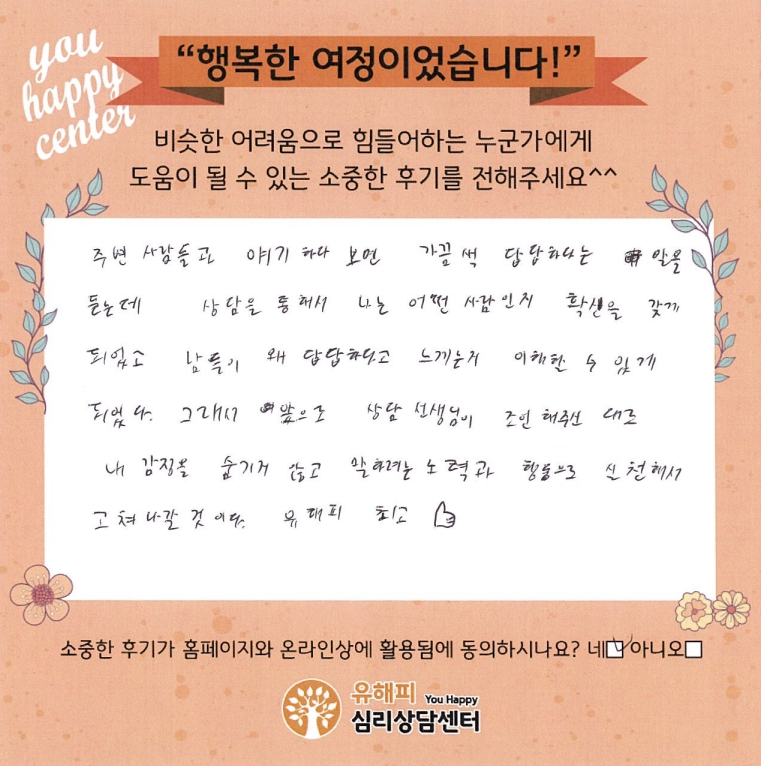 you
happy
center
“행복한 여정이었습니다!”
비슷한 어려움으로 힘들어하는 누군가에게
도움이 될 수 있는 소중한 후기를 전해주세요^^
주변 사람들과 얘기 하다 보면 가끔씩 답답하다는 말을
듣는데 상담을 통해서 나는 어떤 사람인지 확신을 갖게
되었고 남들이 왜 답답하다고 느끼는지 이해할 수 있게
되었다. 그래서 앞으로 상담 선생님이 조언 해주신 대로
내 감정을 숨기지 않고 말하려는 노력과 행동으로 실천해서
고쳐나갈 것이다. 유해피 최고
소중한 후기가 홈페이지와 온라인상에 활용됨에 동의하시나요? 네 아니오
유해피 You Happy
심리상담센터